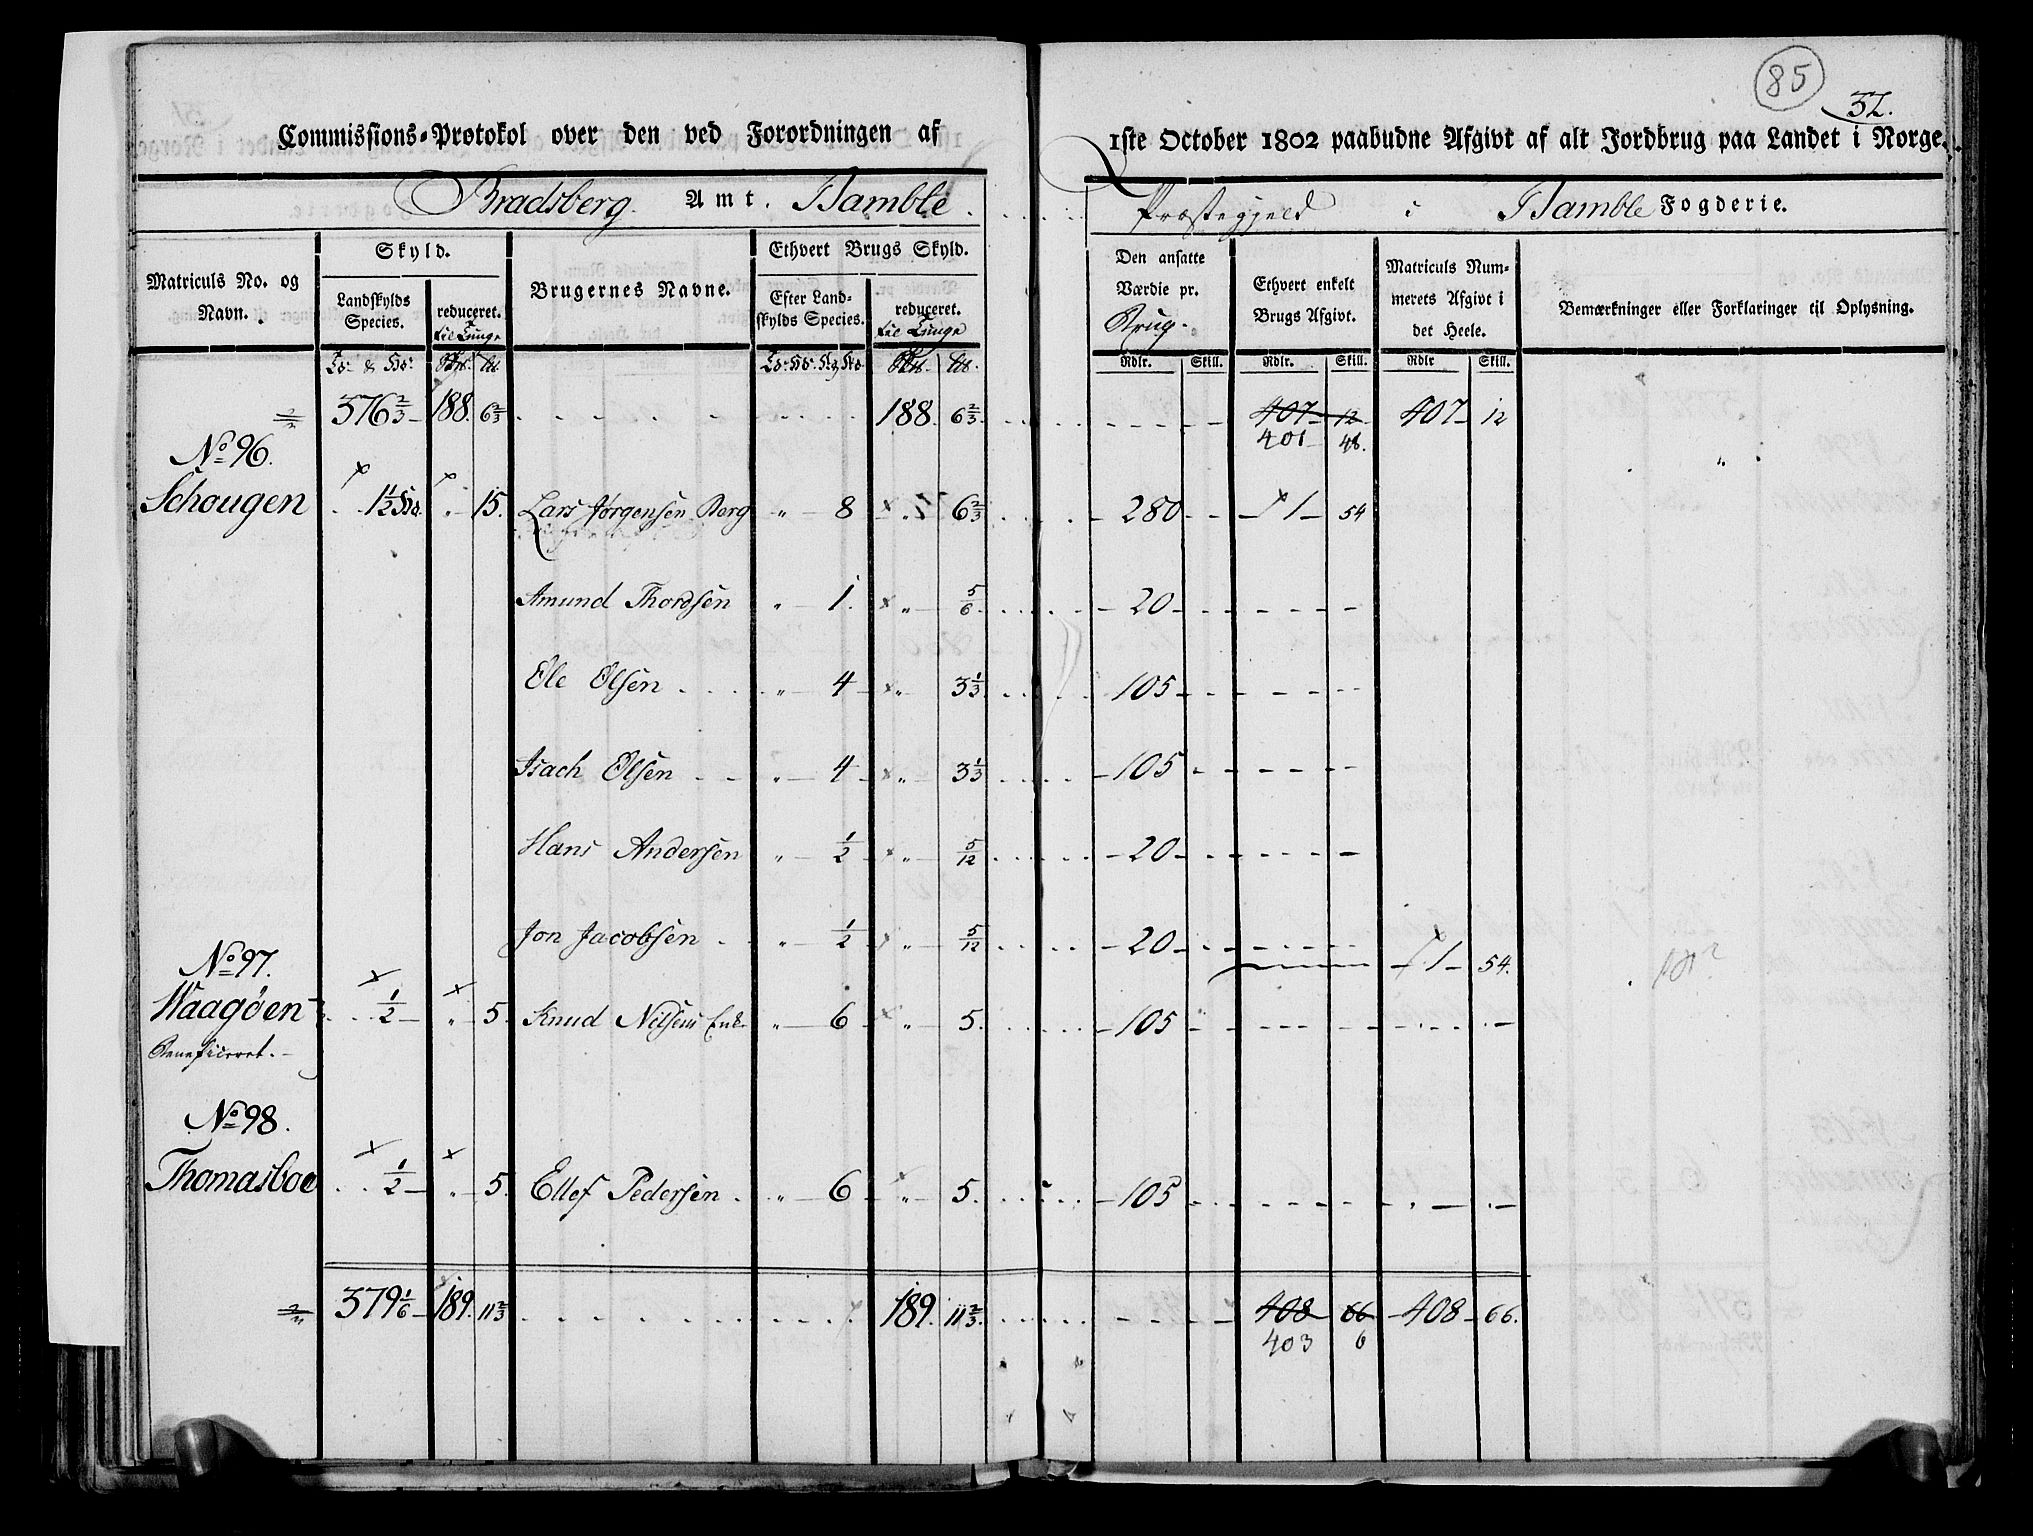 85
32.
Commissions-Protokol over den ved Forordningen af 1ste October 1802 paabudne Afgivt af alt Jordbrug paa Landet i Norge.
Bradsberg Amt. Bamble Præstegjeld i Bamble Fogderie.
Matriculs No. og Navn. Skyld. Brugernes Navne. Ethvert Brugs Skyld. Den ansatte Værdie pr. Brug. Ethvert enkelt Brugs Afgivt. Matriculs Nummerets Afgivt i det Heele. Bemærkninger eller Forklaringer til Oplysning.
Landskylds Species. reduceret. til Tunge Efter Landskylds Species. reduceret. til Tunge
Rdlr. Skill. Rdlr. Skill. Rdlr Skill.
376 2/3 188. 6 2/3 188. 6 2/3 407 12 407 12
401 48.
No 96.
Schougen 1 1/2 15. Lars Jørgensen Berg " 8 " 6 2/3 280 1 54
Amund Thordsen " 1. " 5/6 20
Ole Olsen " 4 " 3 1/3 105
Isach Olsen " 4 " 3 1/3 105
Hans Andersen " 1/2 " 5/12 20
Jon Jacobsen " 1/2 " 5/12 20 1 54.
No 97.
Waagøen 1/2 " 5. Knud Nilsens Enke " 6 " 5. 105
Beneficeret.
No 98.
Thomasboe 1/2 " 5. Ellef Pedersen " 6 " 5. 105
379 1/6 189. 11 2/3 189. 11 2/3 408 66 408 66.
403 6